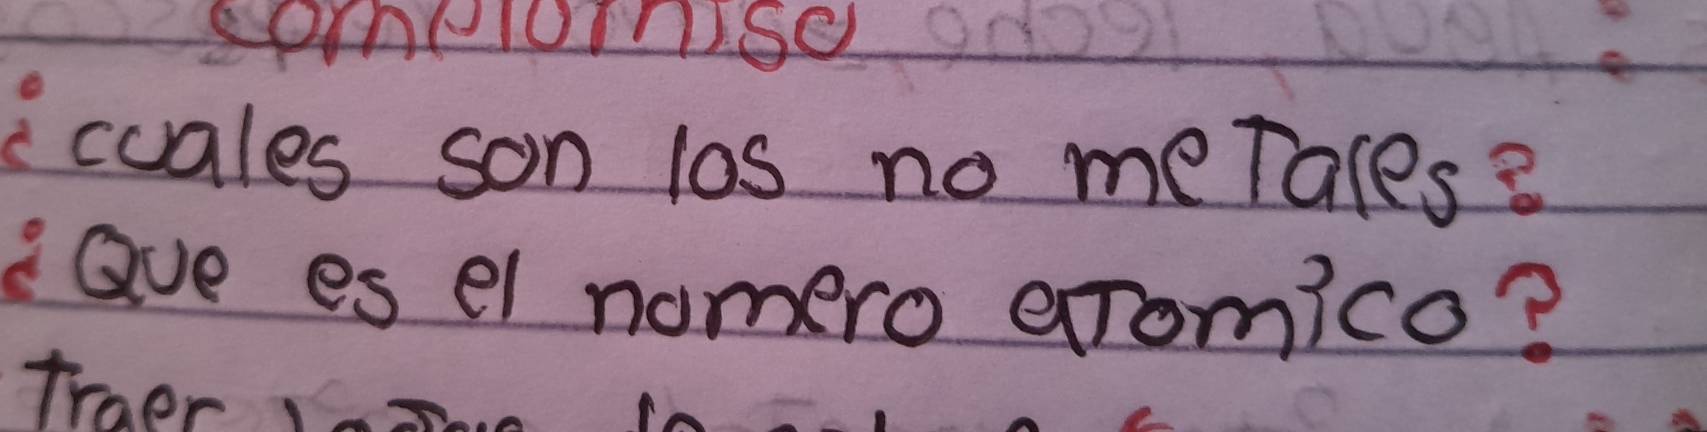 compromiso
¿cuales son los no meTales?
¿Que es el numero aTomico?
Traer